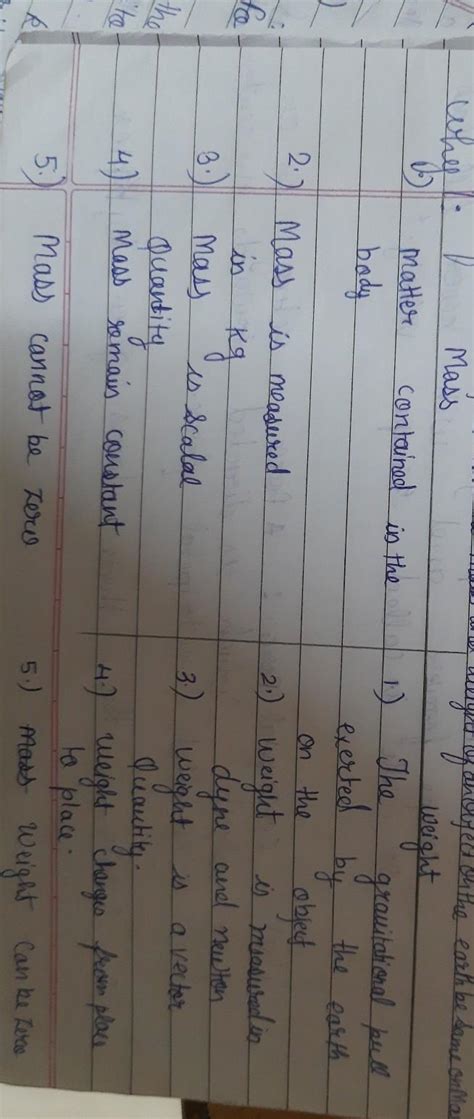 on the earth be same on
Why?
Mass
b) matter contained in the
body
2.) Mass is measured
in Kg
3.) Mass is scalae
Quantity
4.) Mass remain constant
5.) Mass cannot be zero
weight
1.) The gravitational pull
exerted by the earth
on the object
2.) weight is measured in
dyne and newton
3.) weight is a vector
Quantity.
4.) weight changes from place
to place.
5.) Weight can be zero